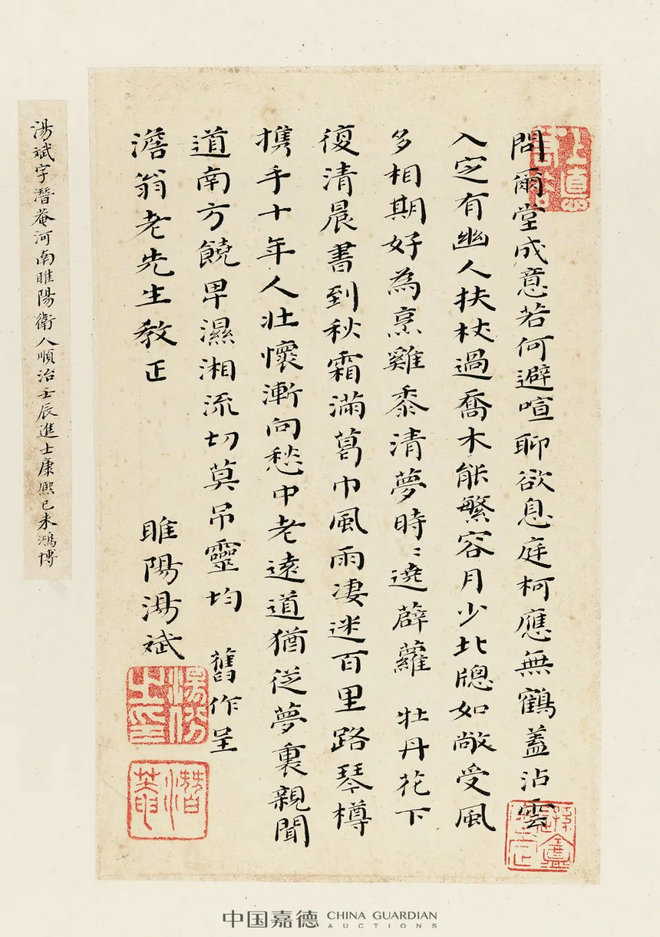 問爾堂成意若何避喧聊欲息庭柯應無鶴蓋沾雲
入定有幽人扶杖過喬木能繁容月少北牕如敞受風
多相期好為烹雞黍清夢時〻遶薜蘿 牡丹花下
復清晨書到秋霜滿葛巾風雨凄迷百里路琴樽
携手十年人壯懷漸向愁中老遠道猶從夢裏親聞
道南方饒卑濕湘流切莫吊靈均 舊作呈
澹翁老先生教正
睢陽湯斌
湯斌之印
潛菴
湯斌字潛菴河南睢陽衛人順治壬辰進士康熙己未鴻博
中国嘉德 CHINA GUARDIAN
AUCTIONS